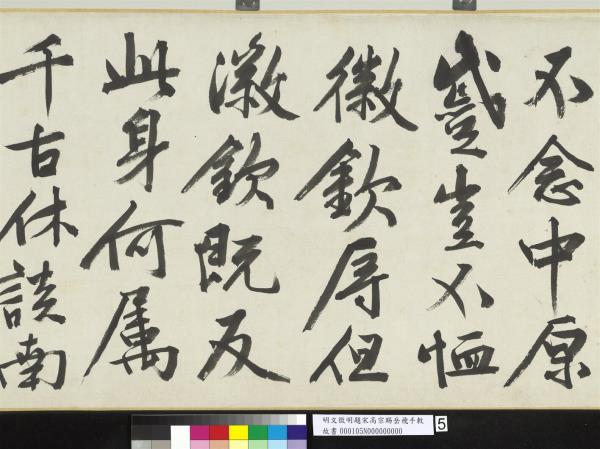 不念中原
蹙豈不恤
徽欽辱但
徽欽既反
此身何属
千古休談南
明文徵明題宋高宗賜岳飛手敕
故書000105N000000000
5